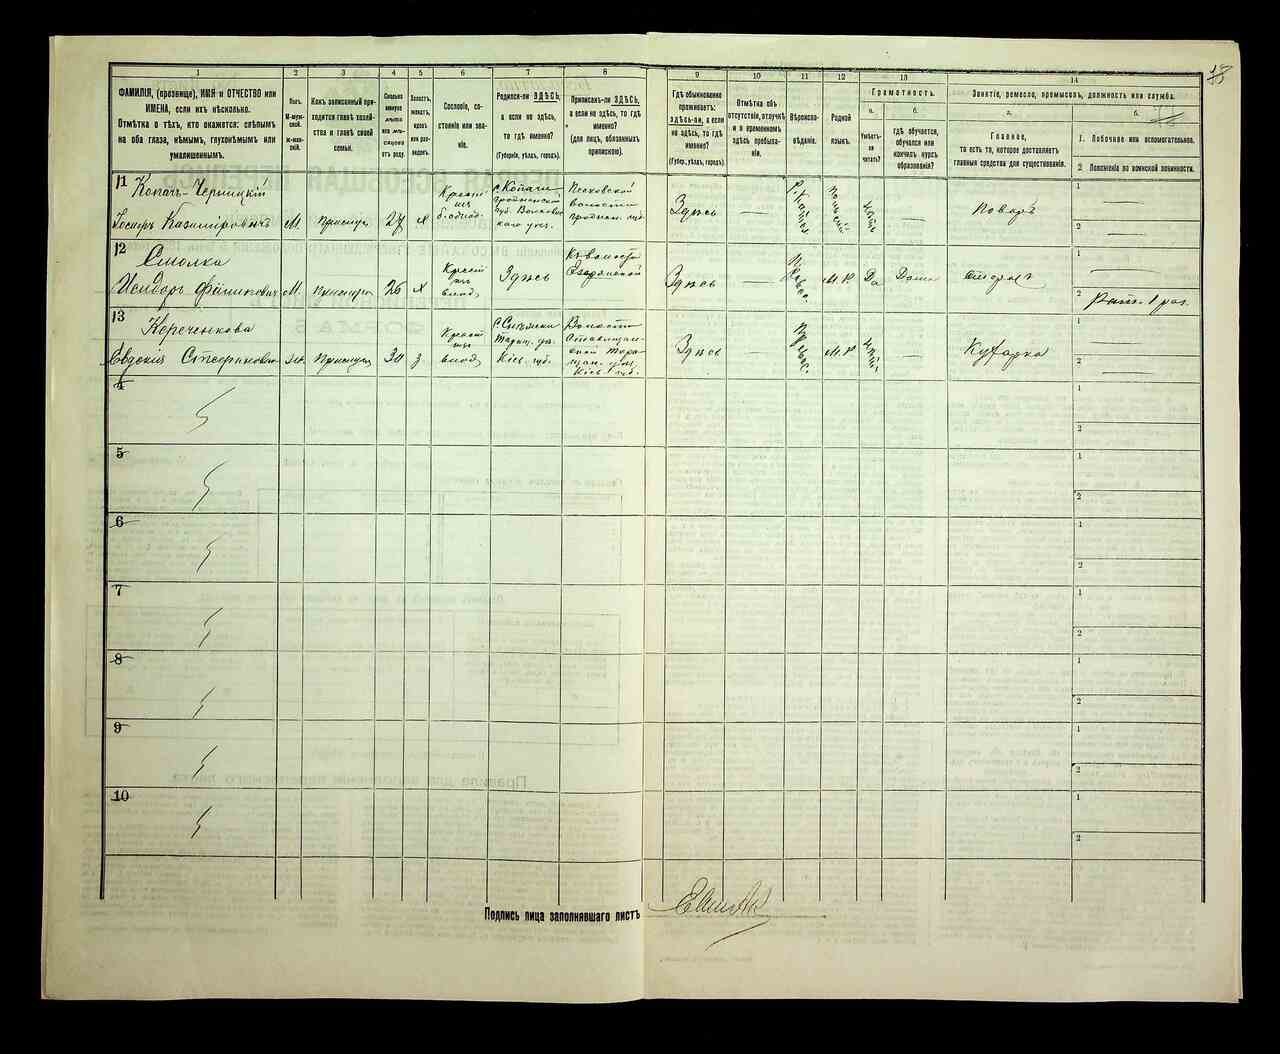 1
2
3
4
5
6
7
8
9
10
11
12
13
14
ФАМИЛІЯ, (прозвище), ИМЯ и ОТЧЕСТВО или
ИМЕНА, если ихъ нѣсколько.
Отмѣтка о тѣхъ, кто окажется: слѣпымъ
на оба глаза, нѣмымъ, глухонѣмымъ или
умалишеннымъ.
Полъ.
М-муж-
ской.
Ж-жен-
скій.
Какъ записанный при-
ходится главѣ хозяй-
ства и главѣ своей
семьи.
Сколько
минуло
лѣтъ
Холостъ,
женатъ,
вдовъ
или раз-
веденъ.
Сословіе, со-
стояніе или зва-
ніе.
Родился-ли ЗДѢСЬ,
а если не здѣсь,
то гдѣ именно?
(Губернія, уѣздъ, городъ).
Приписанъ-ли ЗДѢСЬ,
а если не здѣсь, то гдѣ
именно?
(для лицъ, обязанныхъ
припискою).
Гдѣ обыкновенно
проживаетъ:
ЗДѢСЬ-ли, а если
не здѣсь, то гдѣ
именно?
(Губер., уѣздъ, городъ).
Отмѣтка объ
отсутствіи, отлучкѣ
и о временномъ
здѣсь пребыва-
ніи.
Вѣроиспо-
вѣданіе.
Родной
языкъ.
Грамотность.
а.
Умѣетъ-
ли
читать?
б.
гдѣ обучается,
обучался или
кончилъ курсъ
образованія?
Занятіе, ремесло, промыселъ, должность или служба.
а.
Главное,
то есть то, которое доставляетъ
главныя средства для существованія.
б.
1. Побочное или вспомогательное.
2 Положеніе по воинской повинности.
11
Копачъ-Черницкій
Іосифъ Казиміровичъ
М.
Прислуга
27
Х
Родился
с. Копачи
Гродненской
губ. Волковыс
каго уѣз.
Песковской
волости
Гроднен. губ.
Здѣсь
—
Р. Катол.
Польскій
Нѣтъ
—
Поваръ
1
2
12
Смолка
Исидоръ Филиповичъ
М.
Прислуга
26
Х
Здѣсь
Къ волости
Здѣсь
—
М.Р.
Да
Дома
Сторожъ
1
2
Ратн. 1 раз.
13
Кереченкова
Евдокія Стефановна
Ж.
Прислуга
30
З
Волости
Кіев. губ.
Кіев. губ.
Здѣсь
—
М.Р.
Нѣтъ
—
Кухарка
1
2
4
1
2
5
1
2
6
1
2
7
1
2
8
1
2
9
1
2
10
1
2
Подпись лица заполнявшаго листъ